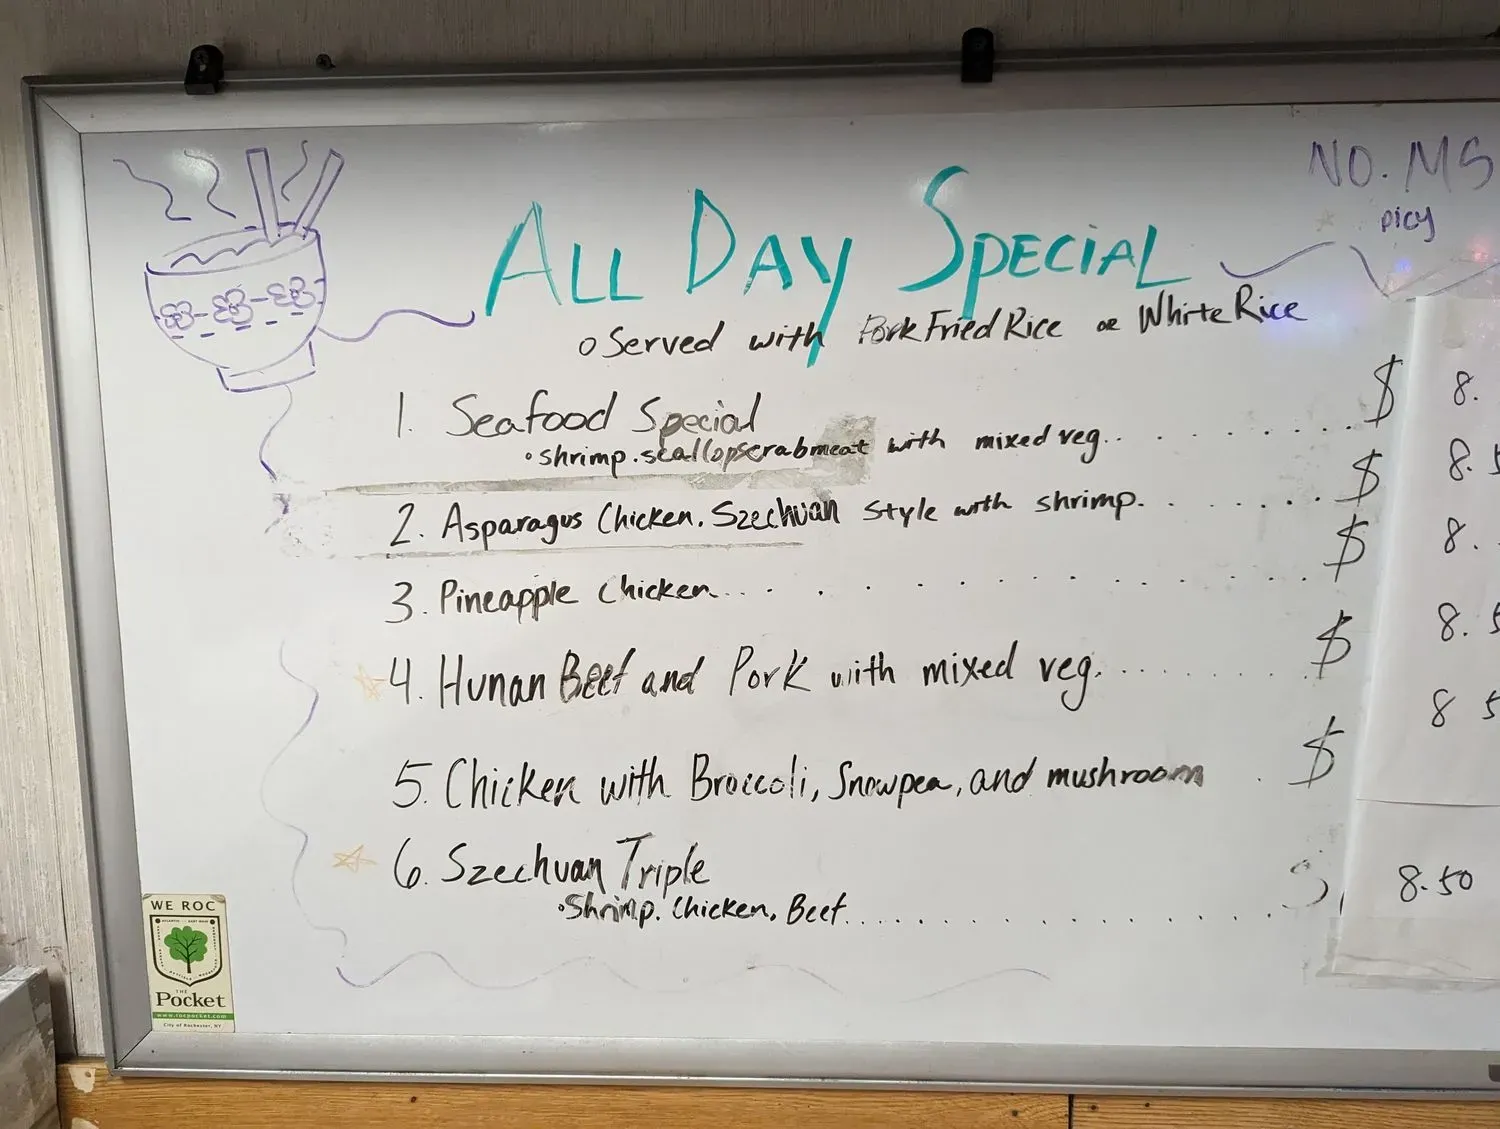 NO. MS
picy
ALL DAY SPECIAL
o Served with Pork Fried Rice or White Rice
1. Seafood Special
•shrimp.scallopscrabmeat with mixed veg.. . . . . . . . . $ 8.
2. Asparagus Chicken. Szechuan Style with shrimp. . . . . . . . $ 8.5
3. Pineapple Chicken... . . . . . . . . . . . . $ 8.
4. Hunan Beef and Pork with mixed veg. . . . . . . . . . $ 8.5
5. Chicken with Broccoli, Snowpea, and mushroom . $ 8 5
6. Szechuan Triple
•Shrimp. Chicken. Beef. . . . . . . . . . . . . . . . 8.50
WE ROC
THE
Pocket
www.rocpocket.com
City of Rochester, NY